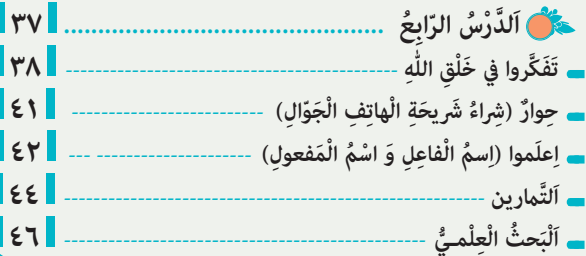 اَلدَّرْسُ الرّابِعُ ................................................ ٣٧
تَفَكَّروا في خَلْقِ اللّٰهِ ------------------------------------------------ ٣٨
حِوارٌ (شِراءُ شَريحَةِ الْهاتِفِ الْجَوّالِ) ---------------------------- ٤١
اِعلَموا (اِسمُ الْفاعِلِ وَ اسْمُ الْمَفعولِ) ---------------------- --- ٤٢
اَلتَّمارين ------------------------------------------------------------ ٤٤
اَلْبَحثُ الْعِلْمـيُّ ---------------------------------------------------- ٤٦